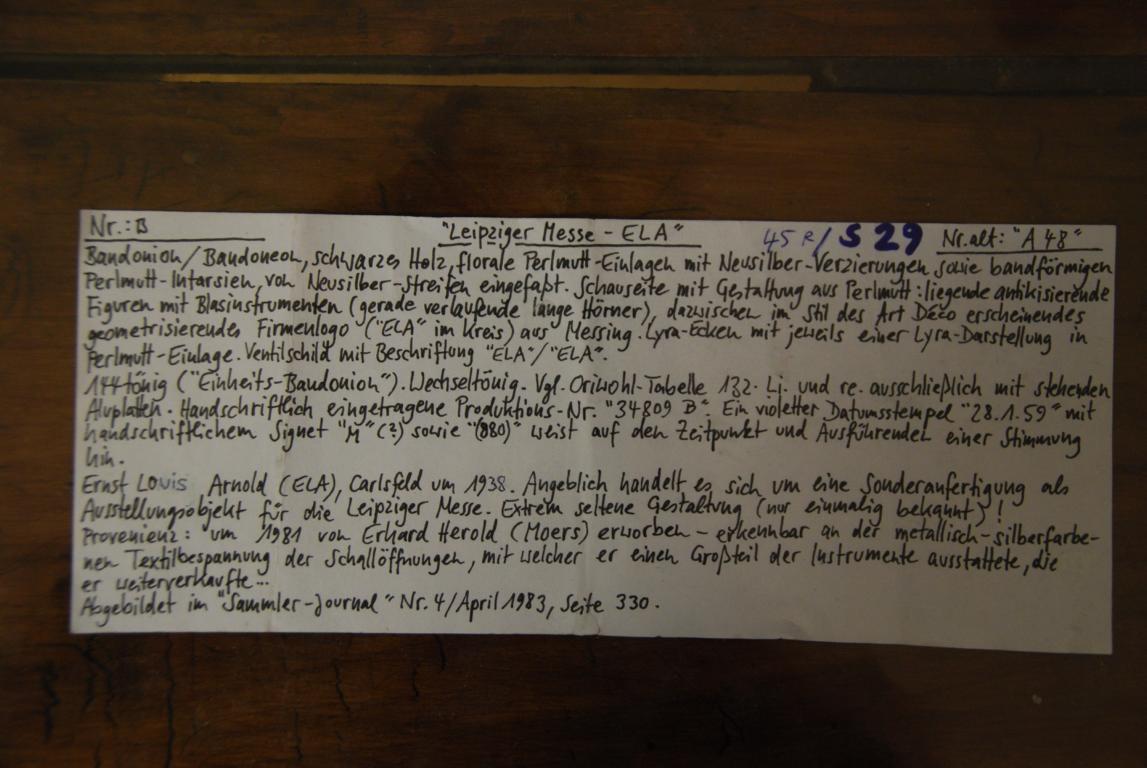 Nr.: B "Leipziger Messe - ELA" 45 R/S 29 Nr. alt: "A 48"
Bandonion/Bandoneon, schwarzes Holz, florale Perlmutt-Einlagen mit Neusilber-Verzierungen sowie bandförmigen
Perlmutt-Intarsien, von Neusilber-Streifen eingefaßt. Schauseite mit Gestaltung aus Perlmutt: liegende antikisierende
Figuren mit Blasinstrumenten (gerade verlaufende lange Hörner), dazwischen im Stil des Art Déco erscheinendes
geometrisierendes Firmenlogo ("ELA" im Kreis) aus Messing. Lyra-Ecken mit jeweils einer Lyra-Darstellung in
Perlmutt-Einlage. Ventilschild mit Beschriftung "ELA"/"ELA".
144tönig ("Einheits-Bandonion"). Wechseltönig. Vgl. Oriwohl-Tabelle 132. Li. und re. ausschließlich mit stehenden
Aluplatten. Handschriftlich eingetragene Produktions-Nr. "34809 B". Ein violetter Datumsstempel "28.1.59" mit
handschriftlichem Signet "M" (?) sowie "(880)" weist auf den Zeitpunkt und Ausführenden einer Stimmung
hin.
Ernst Louis Arnold (ELA), Carlsfeld um 1938. Angeblich handelt es sich um eine Sonderanfertigung als
Ausstellungsobjekt für die Leipziger Messe. Extrem seltene Gestaltung (nur einmalig bekannt)!
Provenienz: um 1981 von Erhard Herold (Moers) erworben - erkennbar an der metallisch-silberfarbe-
nen Textilbespannung der Schallöffnungen, mit welcher er einen Großteil der Instrumente ausstattete, die
er weiterverkaufte...
Abgebildet im "Sammler-Journal" Nr. 4/April 1983, Seite 330.